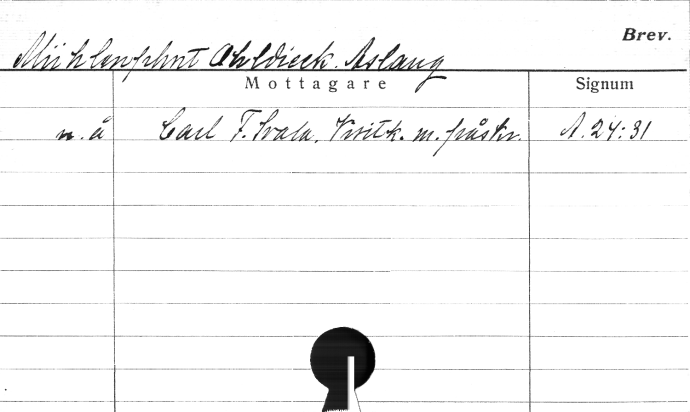 Brev.
Mühlenphnt Ahldieck. Aslaug
Mottagare Signum
n. å Carl F. Svala. Visitk. m. påskr. A. 24:31